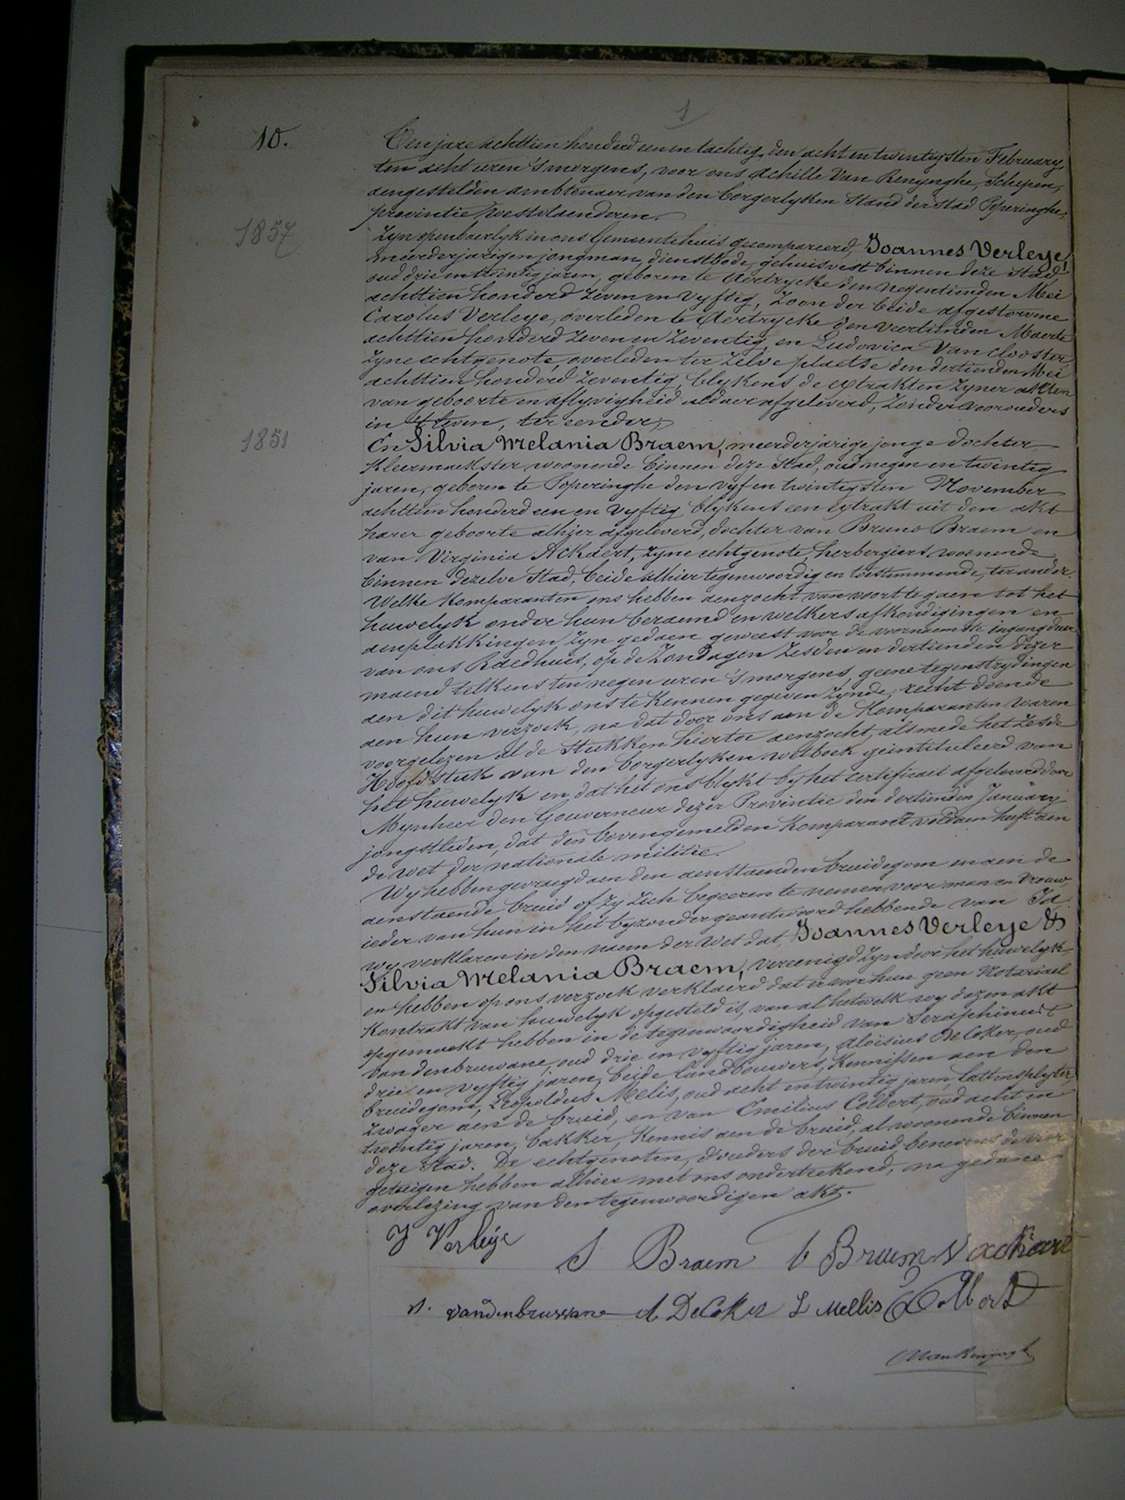 1
10.
Ten jare achttien honderd een en tachtig, den acht en twintigsten February
ten acht uren 's morgens, voor ons Achille Van Renynghe, Schepen,
aengestelden ambtenaer van den borgerlyken Stand der stad Poperinghe,
provintie Westvlaenderen.
1857
Zyn openbaerlyk in ons Gemeentehuis gecompareerd, Joannes Verleye,
meerderjarigen jongman, dienstbode, gehuisvest binnen deze stad,
oud drie en twintig jaren, geboren te Aertrycke den negentienden Mei
achttien honderd zeven en vyftig, zoon der beide afgestorvene
Carolus Verleye, overleden te Aertrycke den veertienden Maerte
achttien honderd zeven en zeventig, en Ludovica Vanclooster,
zyne echtgenote, overleden ter zelve plaetse den dertienden Mei
achttien honderd zeventig, blykens de extrakten zyner akten
van geboorte en aflyvigheid aldaer afgeleverd, zonder voorouders
in leven, ter eender;
1851
En Silvia Melania Braem, meerderjarige jonge dochter,
kleermaekster, woonende binnen deze Stad, oud negen en twintig
jaren, geboren te Poperinghe den vyf en twintigsten November
achttien honderd een en vyftig, blykens een extrakt uit den akt
harer geboorte alhier afgeleverd, dochter van Bruno Braem en
van Virginia Ackaert, zyne echtgenote, herbergiers, woonende
binnen dezelve Stad, beide alhier tegenwoordig en toestemmende, ter ander.
Welke komparanten ons hebben aenzocht van voort te gaen tot het
huwelyk onder hun beraemd en welkers afkondigingen en
aenplakkingen zyn gedaen geweest voor de voornaemste ingangdeur
van ons Raedhuis, op de Zondagen zesden en dertienden dezer
maend telkens ten negen uren 's morgens, geene tegenstrydingen
aen dit huwelyk ons te kennen gegeven zynde, recht doende
aen hun verzoek, na dat door ons aen de komparanten waren
voorgelezen al de stukken hiertoe aenzocht, alsmede het zesde
Hoofdstuk van den borgerlyken wetboek geïntituleerd van
het huwelyk en dat het ons blykt by het certificaet afgeleverd door
Mynheer den Gouverneur dezer Provintie den dertienden January
jongstleden, dat den bovengemelden komparant voldaen heeft aen
de wet der nationale militie.
Wy hebben gevraegd aen den aenstaenden bruidegom en aen de
aenstaende bruid of zy zich begeeren te nemen voor man en vrouw,
ieder van hun in het byzonder geantwoord hebbende van Ja
wy verklaren in den naem der wet dat, Joannes Verleye &
Silvia Melania Braem, vereenigd zyn door het huwelyk,
en hebben op ons verzoek verklaerd dat er voor hun geen Notariael
kontrakt van huwelyk opgesteld is, van al hetwelk wy dezen akt
opgemaekt hebben in de tegenwoordigheid van Seraphinus
Vandenbruwane, oud drie en vyftig jaren, Aloïsius DeCoker, oud
drie en vyftig jaren, beide landbouwers, kennissen aen den
bruidegom, Leopoldus Mellis, oud acht en twintig jaren, lattenklyver,
zwager aen de bruid, en van Emilius Colbert, oud acht en
twintig jaren, bakker, kennis aen de bruid, al woonende binnen
deze stad. De echtgenoten, d'ouders der bruid benevens de vier
getuigen hebben alhier met ons onderteekend, na gedane
overlezing van den tegenwoordigen akt.
J Verleije
S Braem b Braem V ackaert
s. vandenbruwane A DeCoker L Mellis E Colbert
AVanRenynghe